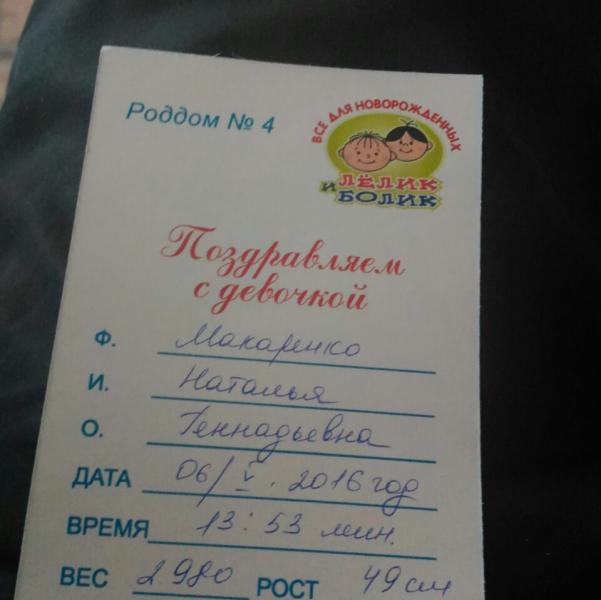 Роддом № 4
ВСЕ ДЛЯ НОВОРОЖДЕННЫХ
ЛЁЛИК
и БОЛИК
Поздравляем
с девочкой
Ф. Макаренко
И. Наталья
О. Геннадьевна
ДАТА 06/V. 2016 год
ВРЕМЯ 13:53 мин.
ВЕС 2980 РОСТ 49 см